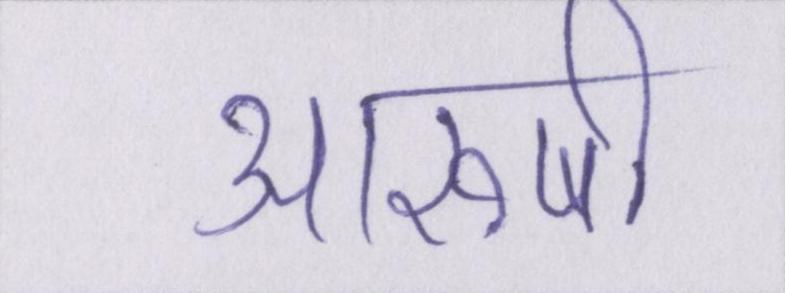 आरूषी